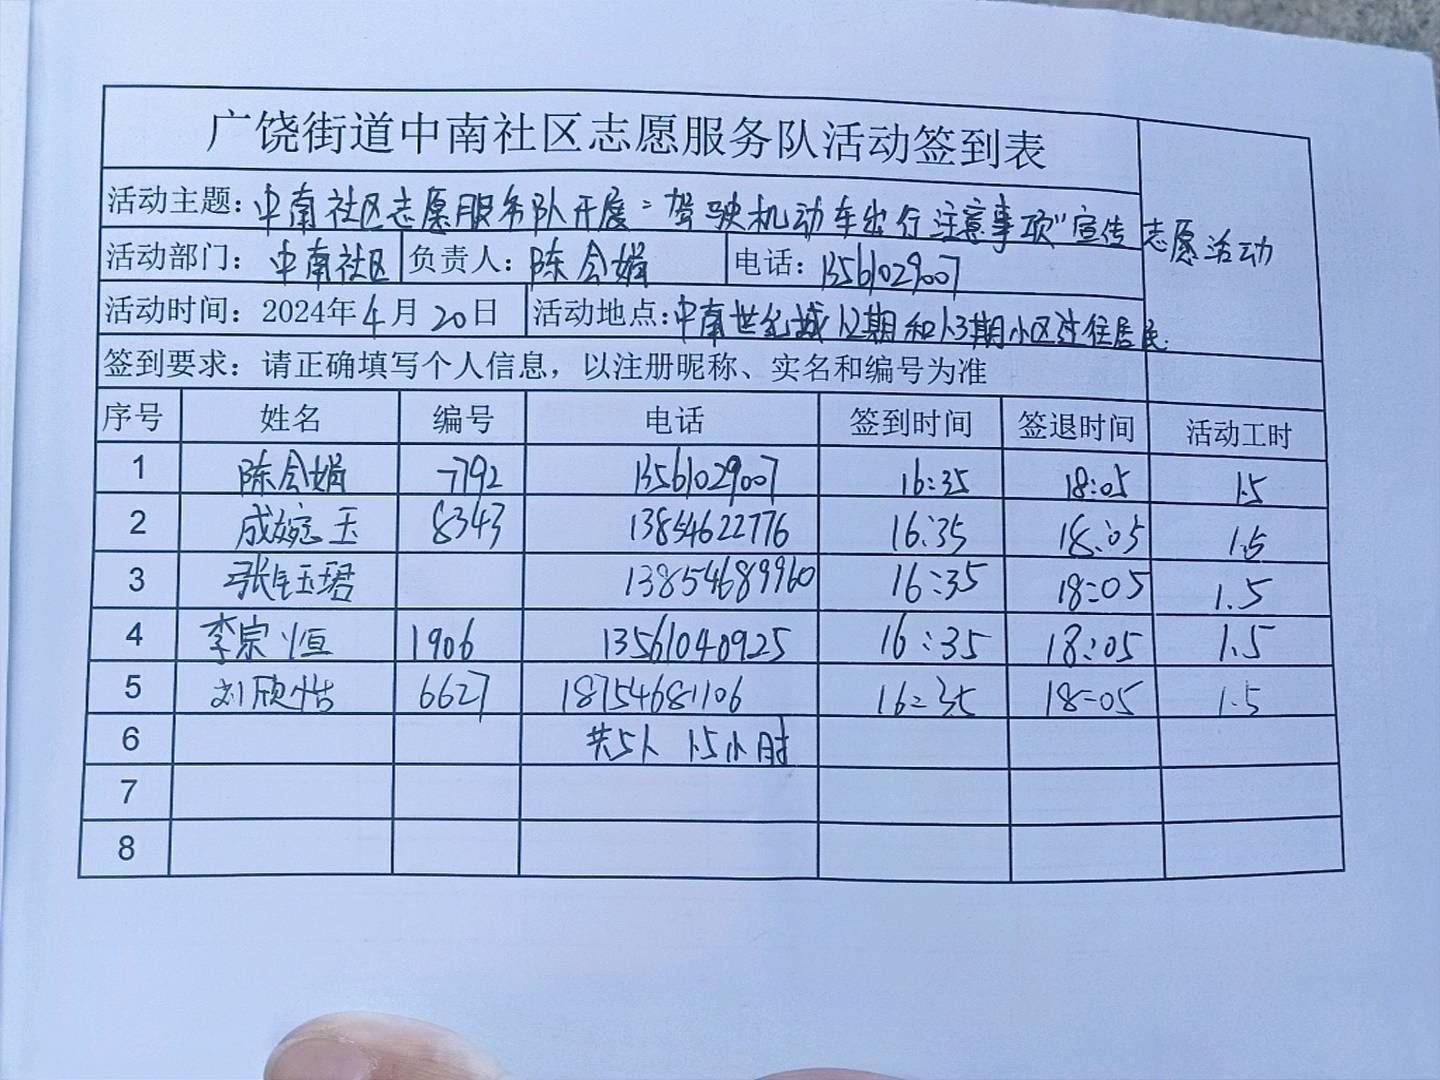 广饶街道中南社区志愿服务队活动签到表
活动主题：中南社区志愿服务队开展"驾驶机动车出行注意事项"宣传 志愿活动
活动部门：中南社区 负责人：陈会娟 电话：13561029007
活动时间：2024年4月20日 活动地点：中南世纪城1.2期和1.3期小区过往居民.
签到要求：请正确填写个人信息，以注册昵称、实名和编号为准
序号 姓名 编号 电话 签到时间 签退时间 活动工时
1 陈会娟 7792 13561029007 16:35 18:05 1.5
2 成婉玉 8343 13854622776 16:35 18:05 1.5
3 张钰珺 13854689960 16:35 18:05 1.5
4 李宗恒 1906 13561040925 16:35 18:05 1.5
5 刘欣怡 6627 18754681106 16:35 18:05 1.5
6 共5人 1.5小时
7
8